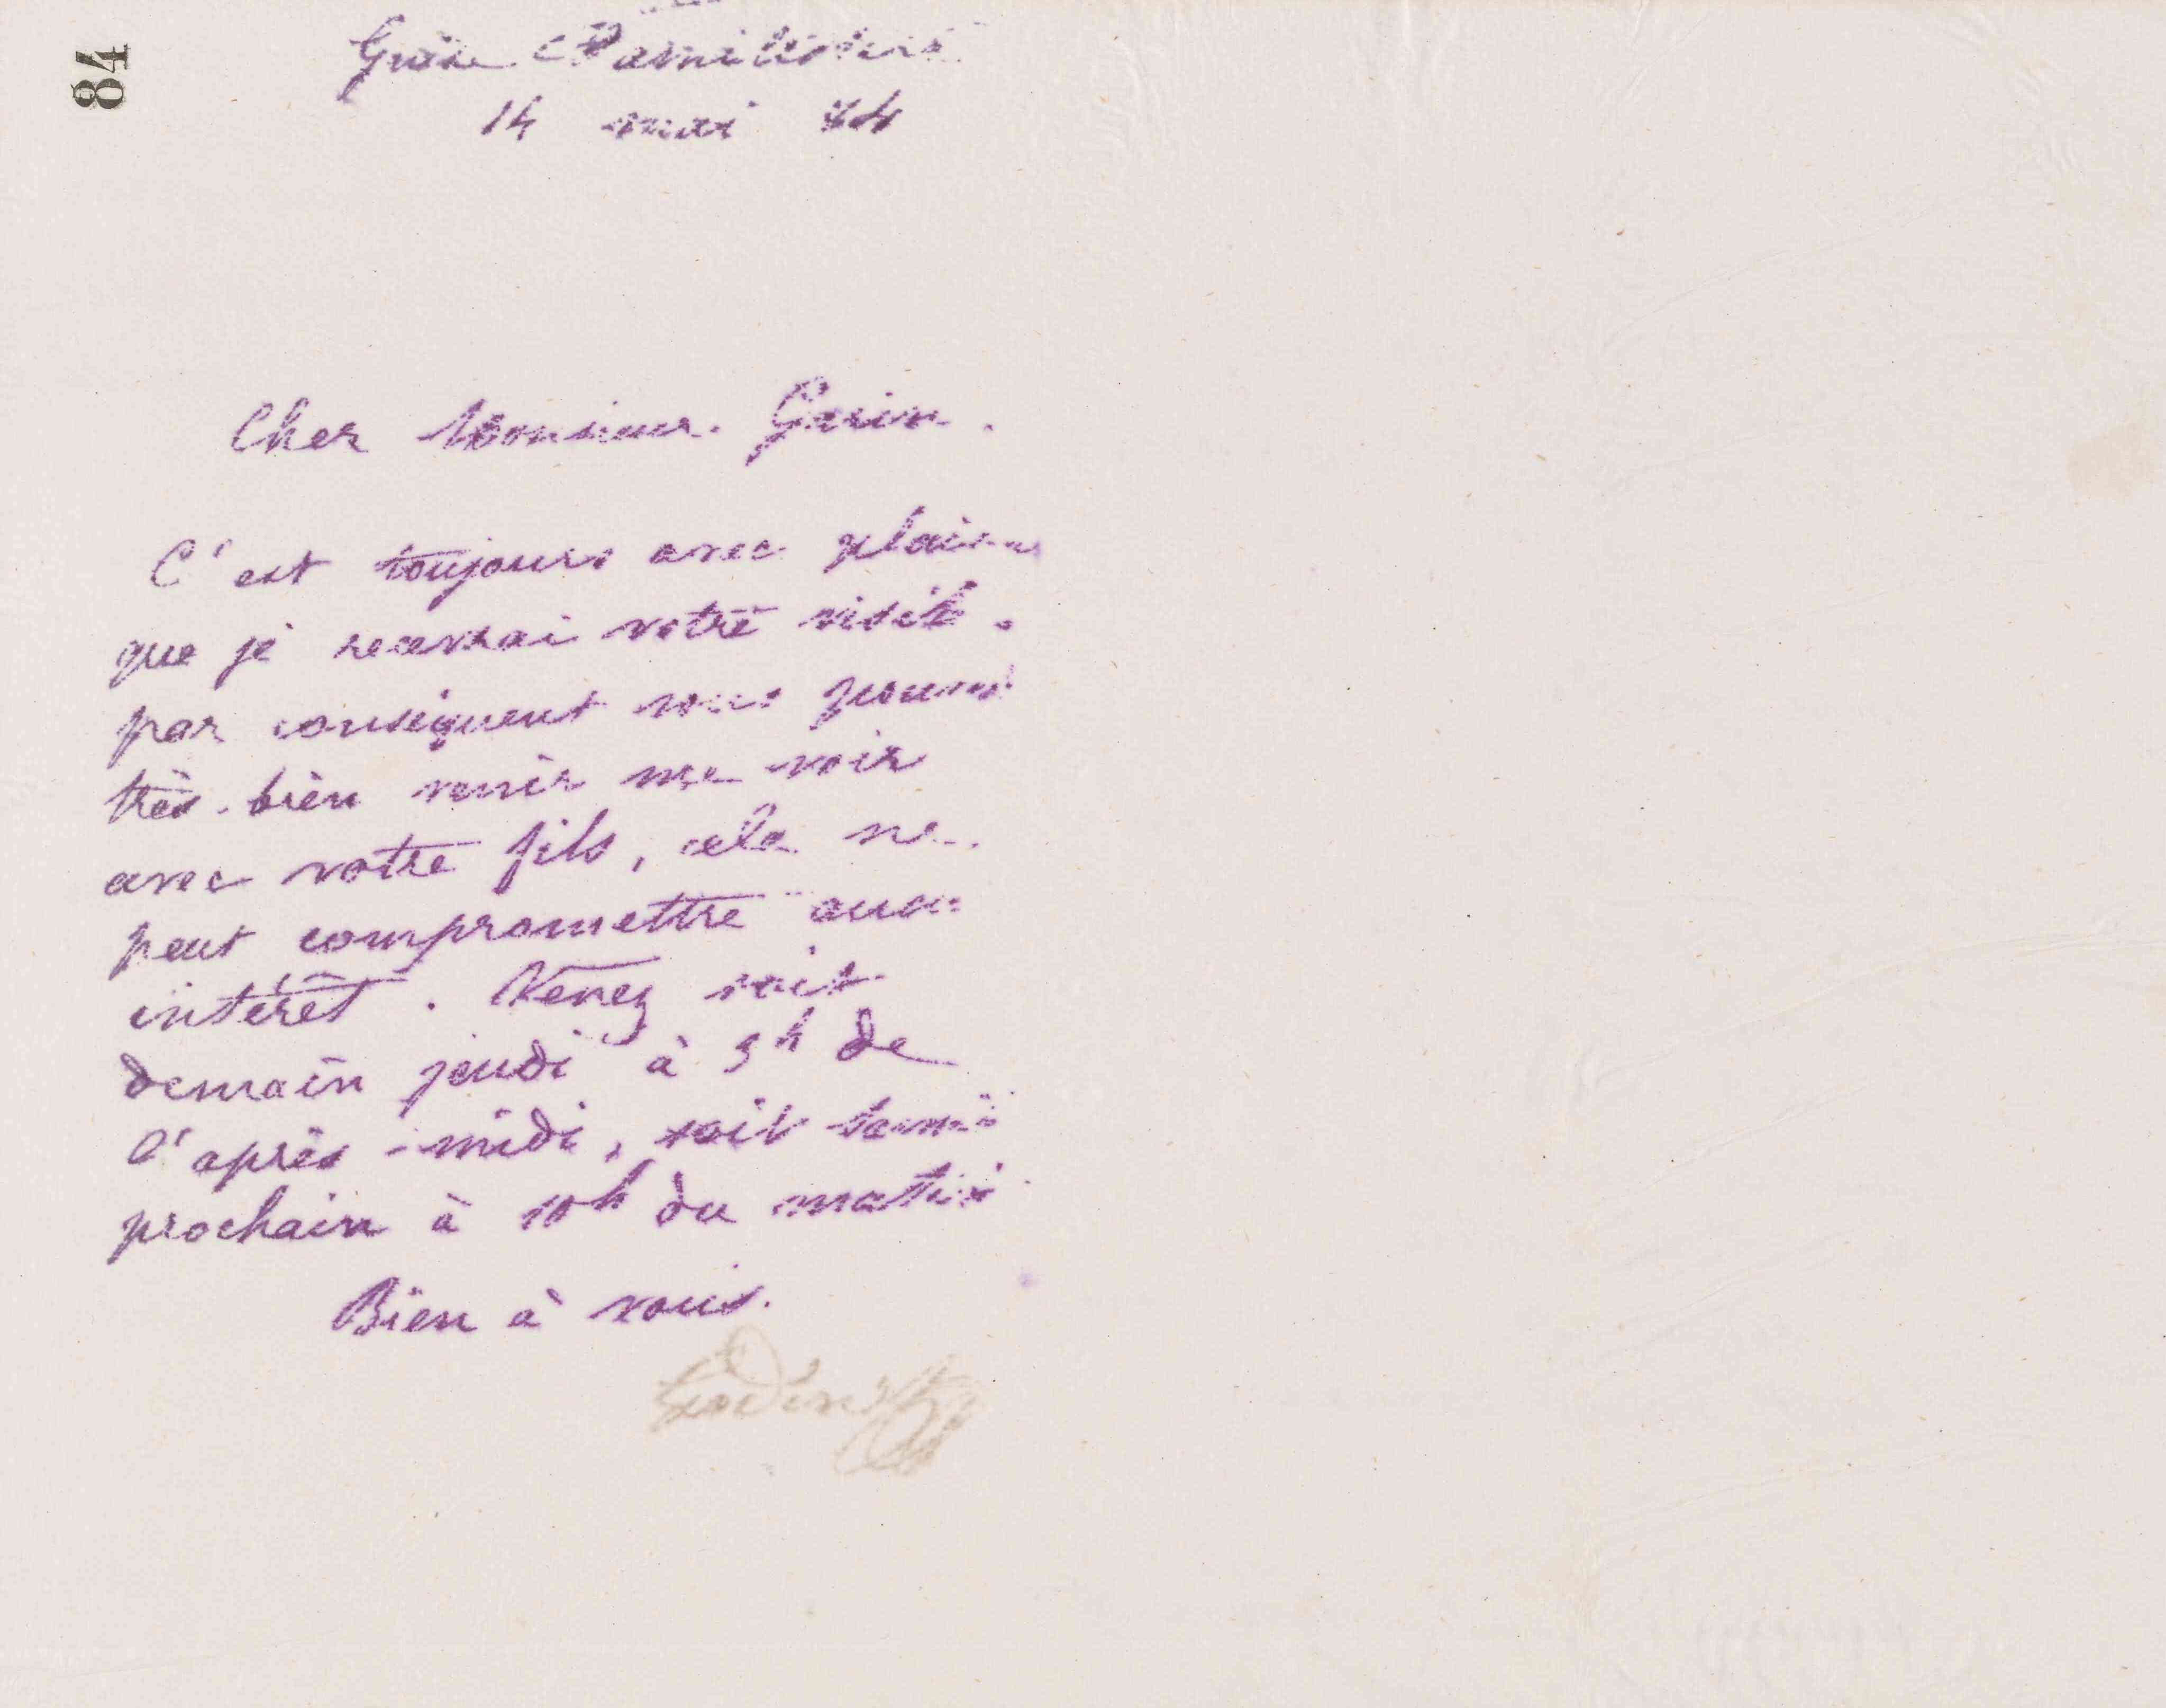 84
Guise Familistère
14 mai 74
Cher Monsieur Garin.
C'est toujours avec plaisir
que je recevrai votre visite.
par conséquent vous pouvez
très-bien venir me voir
avec votre fils, cela ne
peut compromettre aucun
intérêt. Venez soit
demain jeudi à 3h de
l'après-midi, soit samedi
prochain à 10h du matin
Bien à vous.
Godin